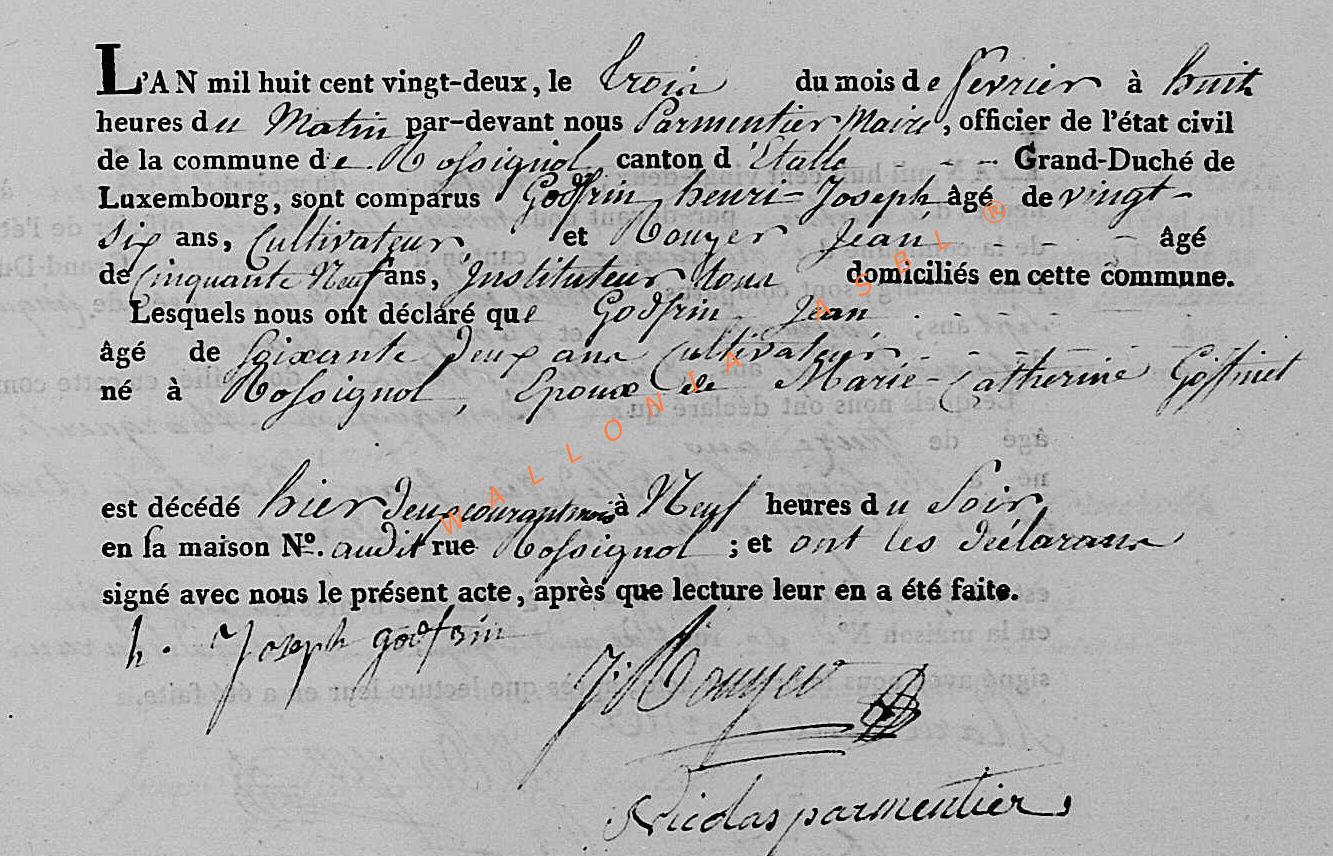 L'AN mil huit cent vingt-deux, le trois du mois de fevrier à huit
heures du Matin par-devant nous Parmentier Maire, officier de l'état civil
de la commune de Rossignol canton d'Etalle - - - Grand-Duché de
Luxembourg, sont comparus Godfrin henri-Joseph âgé de vingt-
six ans, Cultivateur et Rouyer Jean, - - - âgé
de Cinquante Neuf ans, Instituteur tous domiciliés en cette commune.
Lesquels nous ont déclaré que Godfrin Jean,
âgé de Soixante deux ans Cultivateur
né à Rossignol, Epoux de Marie-Catherine Goffinet
est décédé hier deux courant mois à Neuf heures du Soir
en sa maison Nº. audit rue Rossignol ; et ont les déclarans
signé avec nous le présent acte, après que lecture leur en a été faite.
h. Joseph godfrin
J: Rouyer
Nicolas parmentier
WALLONIA ASBL ®